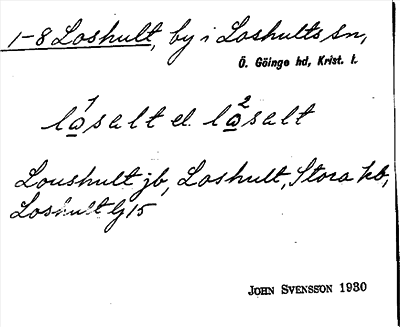 1-8 Loshult, by i Loshults sn,
Ö. Göinge hd, Krist. l.
la¹salt el. la²salt
Loushult jb, Loshult, Stora kb,
Loshult Gj15
JOHN SVENSSON 1930